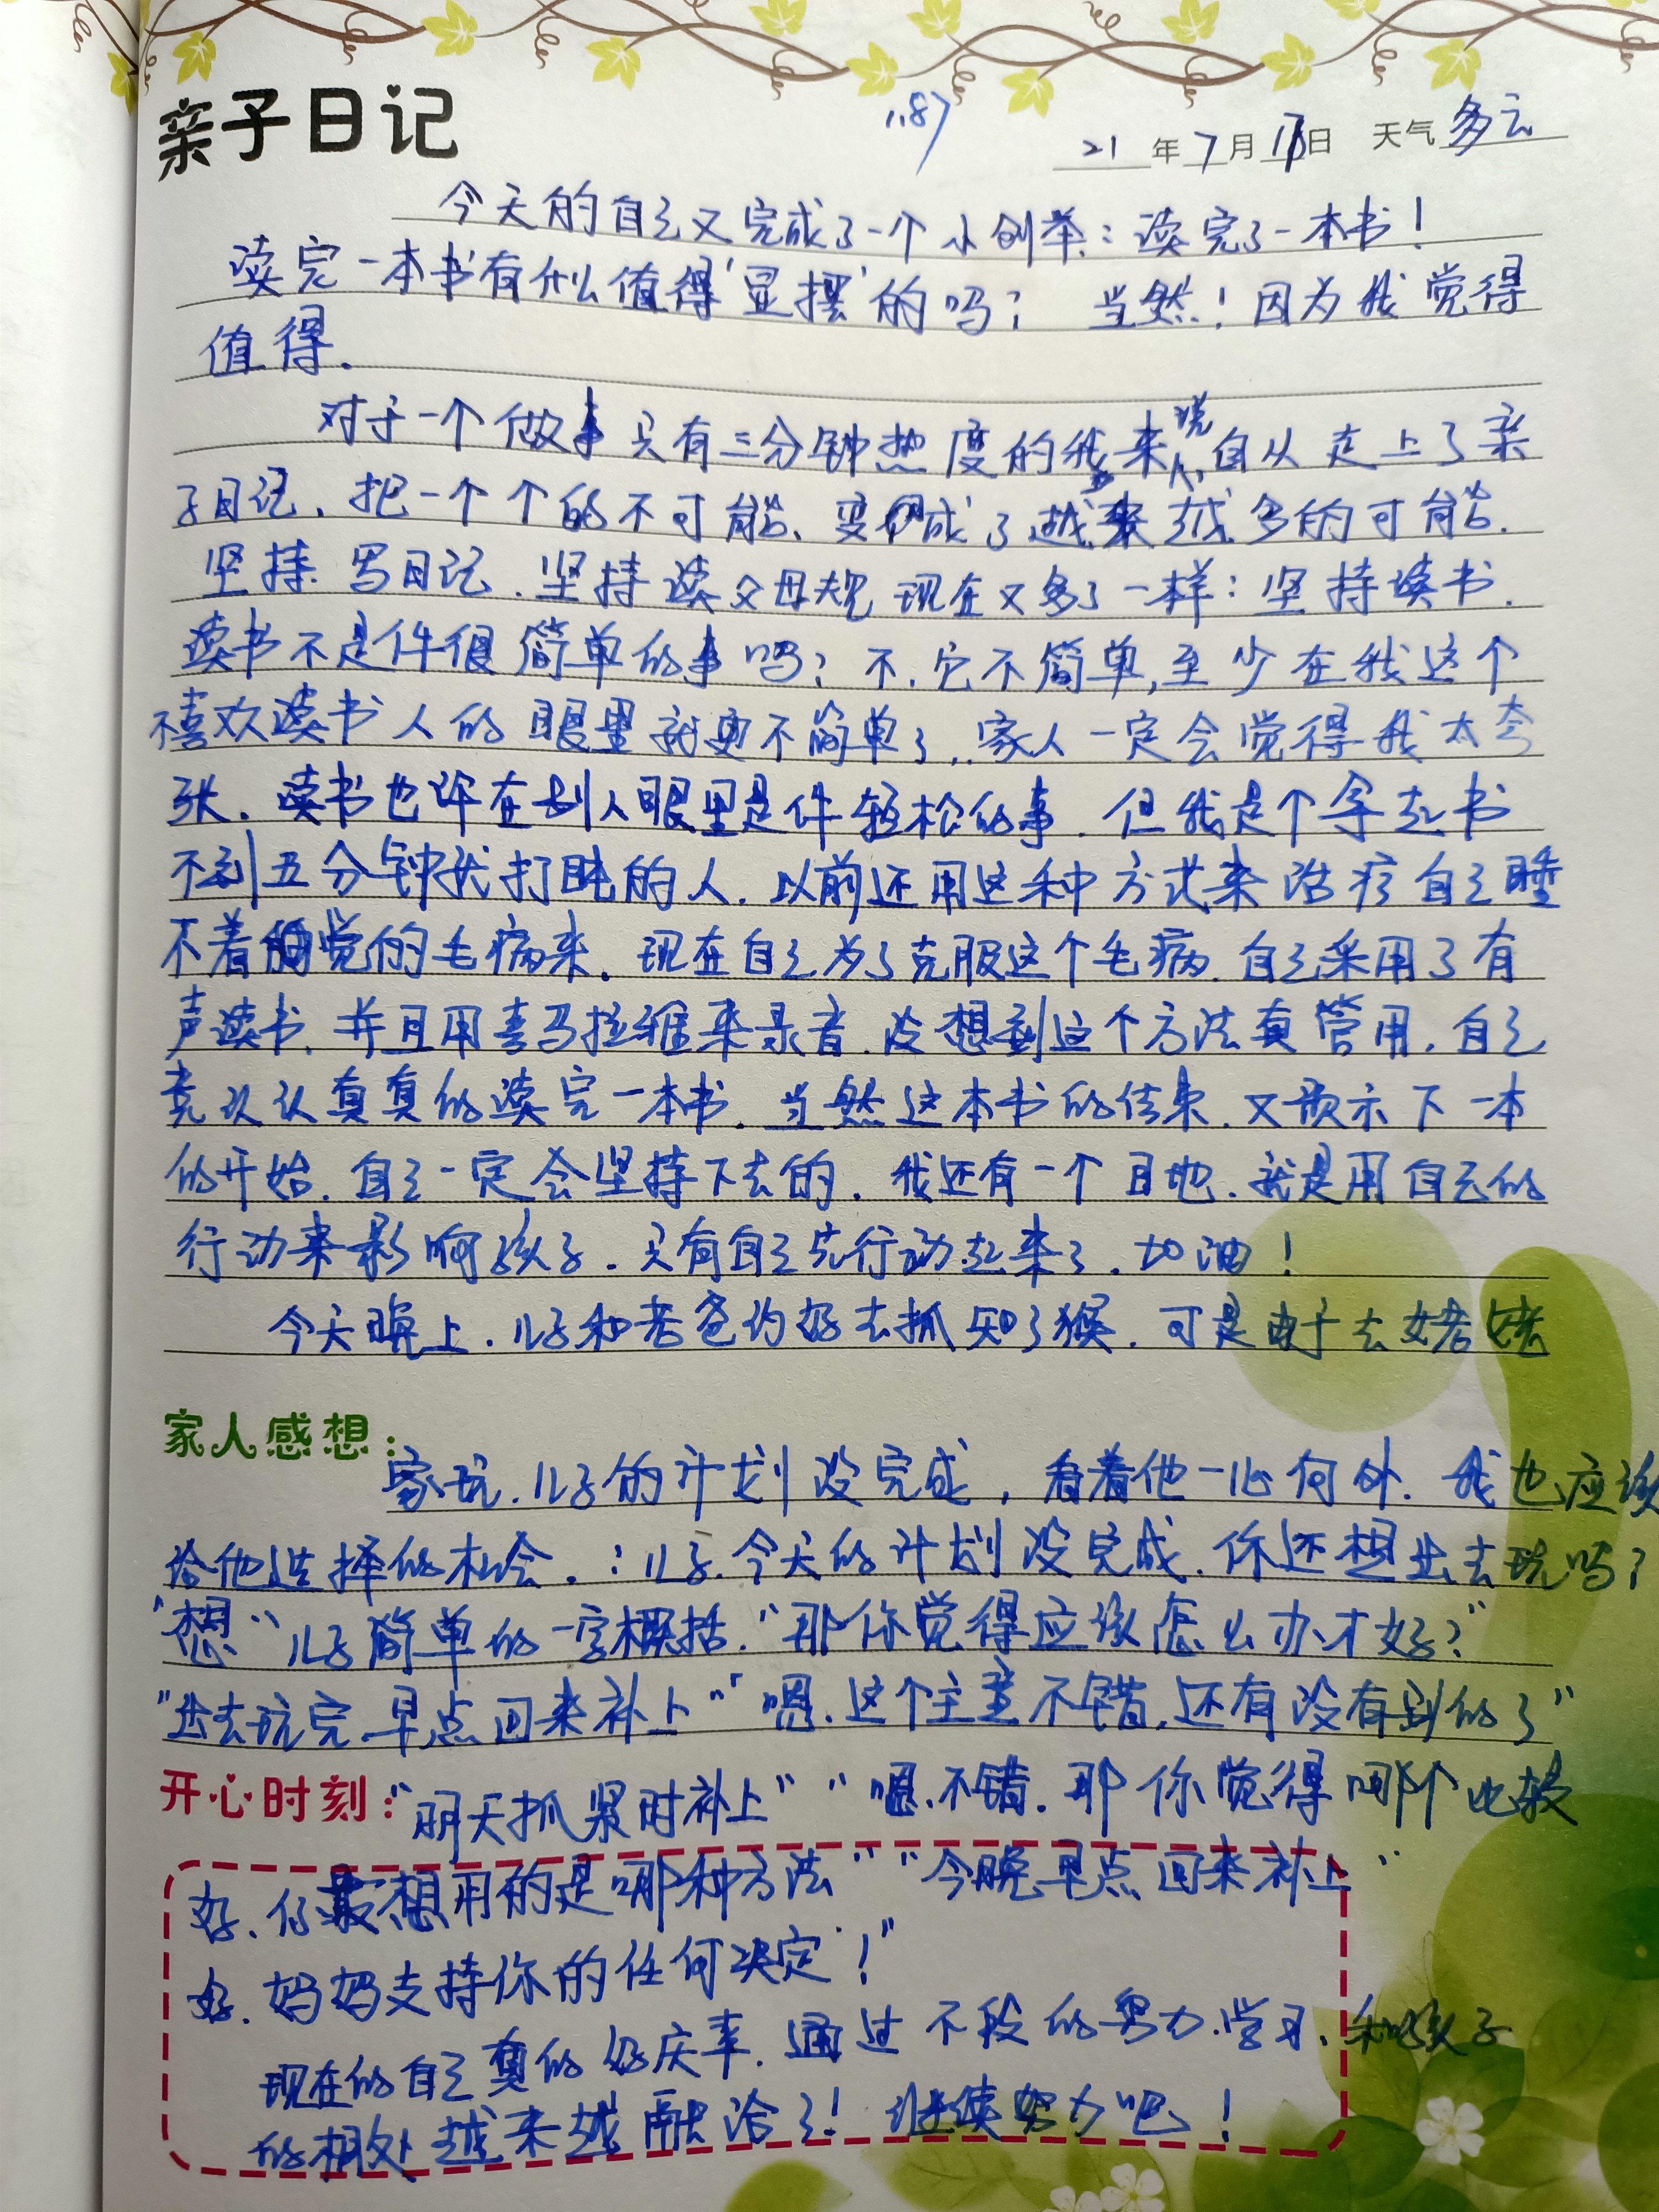 亲子日记
187
21年7月17日 天气多云
今天的自己又完成了一个小创举:读完了一本书!
读完一本书有什么值得'显摆'的吗? 当然!因为我觉得
值得.
对于一个做事只有三分钟热度的我来说,自从走上了亲
子日记、把一个个的不可能、变成了越来越多的可能.
坚持写日记.坚持读父母规 现在又多了一样:坚持读书.
读书不是件很简单的事吗?不.它不简单,至少在我这个
不喜欢读书人的眼里就更不简单了..家人一定会觉得我太夸
张.读书也许在别人眼里是件轻松的事.但我是个拿起书
不到五分钟就打盹的人.以前还用这种方式来治疗自己睡
不着觉的毛病来.现在自己为了克服这个毛病.自己采用了有
声读书.并且用喜马拉雅来录音.没想到这个方法真管用.自己
竟认认真真的读完一本书.当然这本书的结束.又预示下一本
的开始.自己一定会坚持下去的.我还有一个目地.就是用自己的
行动来影响孩子.只有自己先行动起来了.加油!
今天晚上.儿子和老爸约好去抓知了猴.可是由于去姥姥
家人感想:
家玩.儿子的计划没完成,看着他一心向外.我也应该
给他选择的机会.:儿子.今天的计划没完成.你还想出去玩吗?
"想"儿子简单的一字概括."那你觉得应该怎么办才好?"
"出去玩完早点回来补上""嗯.这个主意不错.还有没有别的了"
开心时刻:
"明天抓紧时补上""嗯.不错.那你觉得哪个比较
好.你最想用的是哪种方法""今晚早点回来补上"
好.妈妈支持你的任何决定!"
现在的自己真的好庆幸.通过不段的努力.学习.和孩子
的相处越来越融洽了!继续努力吧!